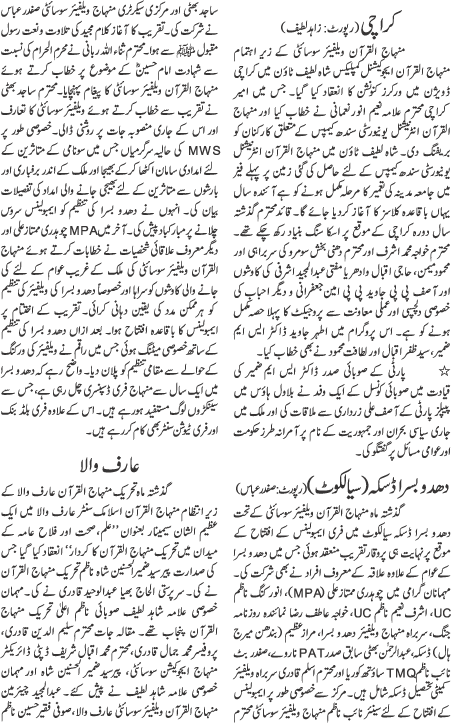 کراچی (رپورٹ: زاہد لطیف)
منہاج القرآن ویلفیئر سوسائٹی کے زیر اہتمام
منہاج القرآن ایجوکیشنل کمپلیکس شاہ لطیف ٹاؤن میں کراچی
ڈویژن میں ورکرز کنونشن کا انعقاد کیا گیا جس میں امیر
کراچی محترم علامہ نعیم انور نعمانی نے خطاب کیا اور منہاج
القرآن انٹرنیشنل یونیورسٹی سندھ کیمپس کے متعلق کارکنان کو
بریفنگ دی۔ شاہ لطیف ٹاؤن میں منہاج القرآن انٹرنیشنل
یونیورسٹی سندھ کیمپس کے لئے حاصل کی گئی زمین پر پہلے فیز
میں جامعہ مدینہ کی تعمیر کا مرحلہ مکمل ہونے کو ہے آئندہ سال
یہاں باقاعدہ کلاسز کا آغاز کردیا جائے گا۔ قائد محترم گذشتہ
سال دورہ کراچی کے موقع پر اسکا سنگ بنیاد رکھ چکے تھے۔
محترم خواجہ محمد اشرف اور محترم دھنی بخش سومرو کی سربراہی اور
محمود میمن، حاجی اقبال وادھریا مفتی عبدالمجید اشرفی کی کاوشوں
اور آصف پی پی جاوید پی پی امین جعفرانی و دیگر احباب کی
خصوصی دلچسپی اور عملی معاونت سے پروجیکٹ کا پہلا حصہ مکمل
ہونے کو ہے۔ اس پروگرام میں اطہر جاوید ڈاکٹر ایس ایم
ضمیر، سید ظفر اقبال اور لطافت محمود نے بھی خطاب کیا۔
☆ پارٹی کے صوبائی صدر ڈاکٹر ایس ایم ضمیر کی
قیادت میں صوبائی کونسل کے ایک وفد نے بلاول ہاؤس میں
پیپلز پارٹی کے آصف علی زرداری سے ملاقات کی اور ملک میں
جاری سیاسی بحران اور جمہوریت کے نام پر آمرانہ طرز حکومت
اور عوامی مسائل پر گفتگو کی۔
دھدو بسرا ڈسکہ (سیالکوٹ) (رپورٹ: صفدر عباس)
گذشتہ ماہ منہاج القرآن ویلفیئر سوسائٹی کے تحت
دھدو بسرا ڈسکہ سیالکوٹ میں فری ایمبولینس کے افتتاح کے
موقع پر نہایت ہی پروقار تقریب منعقد ہوئی جس میں دھدو بسرا
کے عوام کے علاوہ علاقہ کے معروف افراد نے بھی شرکت کی۔
مہمانان گرامی میں چوہدری ممتاز علی (MPA)، انور گنگ ناظم
UC، اشرف نعیم ناظم UC، خواجہ عاطف رضا نمائندہ روزنامہ
جنگ، سربراہ منہاج ویلفیئر دھدو بسرا، مرزا عظیم (بندھن میرج
ہال) ڈسکہ، عبدالرحمٰن بھٹی سابق صدر PAT نارووے، صفدر بٹ
نایب ناظم TMQ ساؤتھ کوریا اور محترم اسلم قادری سربراہ ویلفیئر
کمیٹی تحصیل ڈسکہ شامل ہیں۔ مرکز سے خصوصی طور پر ایمبولینس
کے افتتاح کے لئے سینئر نایب ناظم منہاج ویلفیئر سوسائٹی محترم
ساجد بھٹی اور مرکزی سیکرٹری منہاج ویلفیئر سوسائٹی صفدر عباس
نے شرکت کی۔ تقریب کا آغاز کلام مجید کی تلاوت و نعت رسول
مقبول ﷺ سے ہوا۔ محترم ثناء اللہ ربانی نے محرم الحرام کی نسبت
سے شہادت امام حسینؓ کے موضوع پر خطاب کرتے ہوئے
منہاج القرآن ویلفیئر سوسائٹی کا پیغام پہنچایا۔ محترم ساجد بھٹی
نے تقریب سے خطاب کرتے ہوئے ویلفیئر سوسائٹی کا تعارف
اور اس کے جاری منصوبہ جات پر روشنی ڈالی۔ خصوصی طور پر
MWS کی حالیہ سرگرمیاں جس میں سونامی کے متاثرین کے
لئے امدادی سامان اکٹھا کرکے بھیجا اور ملک کے اندر برفباری اور
بارشوں سے متاثرین کے لئے بھیجی جانے والی امداد کی تفصیلات
بیان کی۔ انہوں نے دھدو بسرا کی تنظیم کو ایمبولینس سروس
چلانے پر مبارکباد پیش کی۔ آخر میں MPA چوہدری ممتاز علی اور
دیگر معروف علاقائی شخصیات نے خطابات کرتے ہوئے منہاج
القرآن ویلفیئر سوسائٹی کی ملک کے غریب عوام کے لئے کی
جانے والی کاوشوں کو سراہا اور خصوصاً دھدو بسرا کی ویلفیئر کی تنظیم
کو ہر ممکن مدد کی یقین دہانی کرائی۔ تقریب کے اختتام پر
ایمبولینس کا باقاعدہ افتتاح ہوا۔ بعد ازاں دھدو بسرا کی تنظیم
کے ساتھ خصوصی میٹنگ ہوئی جس میں راقم نے ویلفیئر کی ورکنگ
کے حوالے سے مقامی تنظیم کو پلان دیا۔ واضح رہے کہ دھدو بسرا
میں ایک سال سے منہاج فری ڈسپنسری چل رہی ہے، جس سے
سینکڑوں لوگ مستفید ہورہے ہیں۔ اس کے علاوہ فری بلڈ بنک
اور فری ٹیوشن سنٹر بھی کام کررہے ہیں۔
عارف والا
گذشتہ ماہ تحریک منہاج القرآن عارف والا کے
زیر انتظام منہاج القرآن اسلامک سنٹر عارف والا میں ایک
عظیم الشان سیمینار بعنوان ”علم، صحت اور فلاح عامہ کے
میدان میں تحریک منہاج القرآن کا کردار“ انعقاد کیا گیا جس
کی صدارت پیر سید ضمیر الحسنین شاہ ناظم تحریک منہاج القرآن
نے کی۔ سرپرستی الحاج بھیا عبدالوحید قادری نے کی۔ مہمان
خصوصی علامہ شاہد لطیف صوبائی ناظم اعلیٰ تحریک منہاج
القرآن پنجاب تھے۔ مقالہ جات محترم سلیم الدین قادری،
پروفیسر محمد جمال قادری، محترم محمد اقبال شریف ڈپٹی ڈائریکٹر
منہاج ایجوکیشن سوسائٹی، پیر سید ضمیر الحسنین شاہ اور مہمان
خصوصی علامہ شاہد لطیف نے پیش کئے۔ عبدالمجید چیئرمین
منہاج القرآن ویلفیئر سوسائٹی عارف والا، صوفی فقیر حسین ناظم